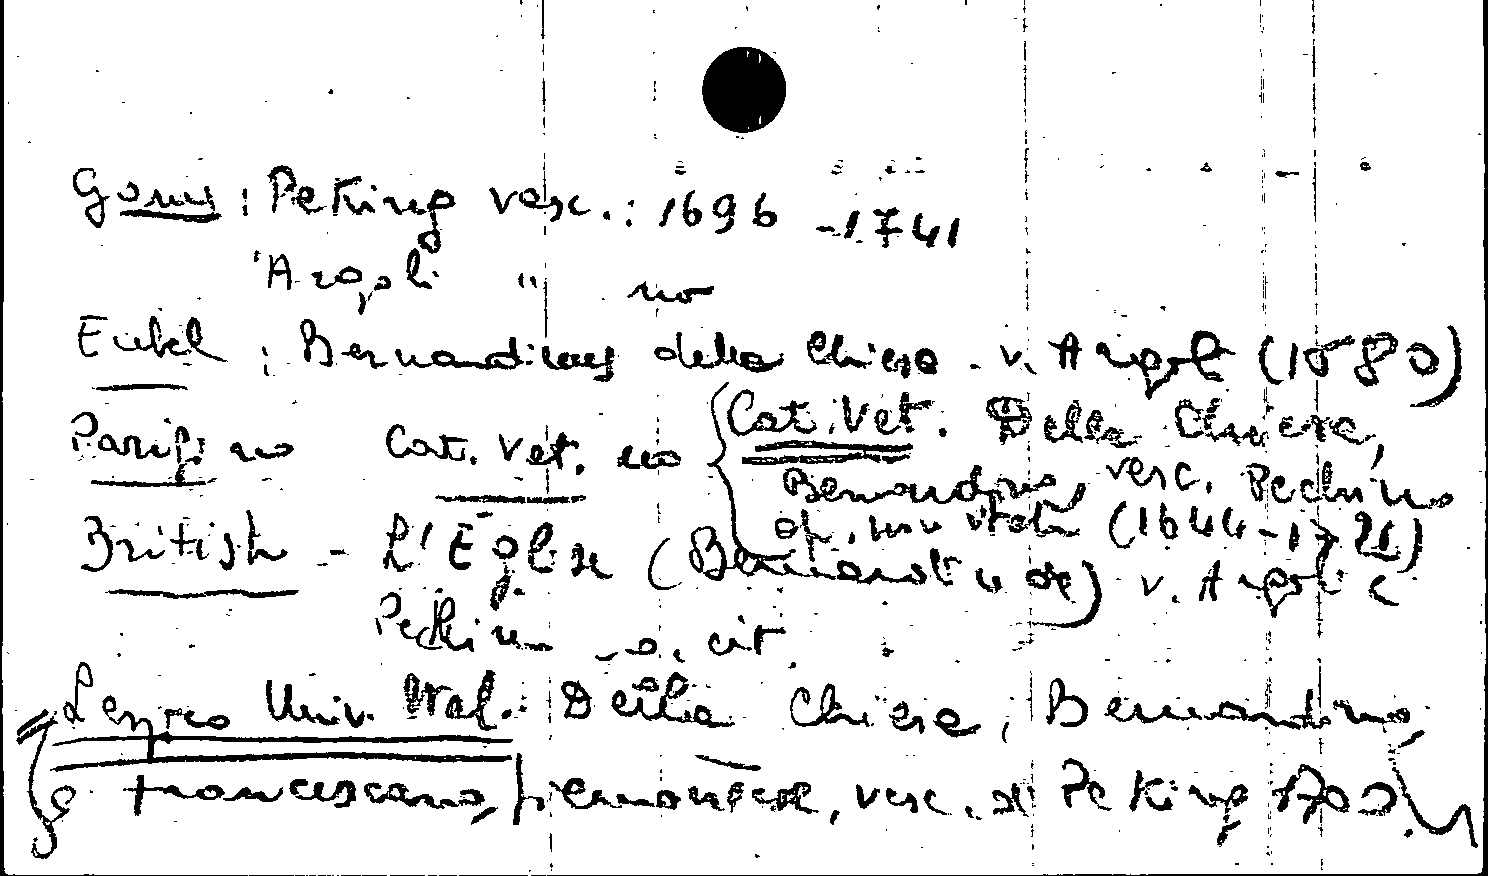 Gams : Peking vesc. : 1696 - 1741
Argoli " no
Eubel : Bernardinus della Chiesa . v. Argoli (1680)
Parigi no Cat. Vet. no { Cat. Vet. Della Chiesa,
Bernardino, vesc. Pechino
op. (1644-1721)
British - L'Église (Bernardin de) v. Argoli e
Pechino - o. cit.
Univ. Ital.: Della Chiesa, Bernardino,
francescano, piemontese, vesc. di Peking 1700.